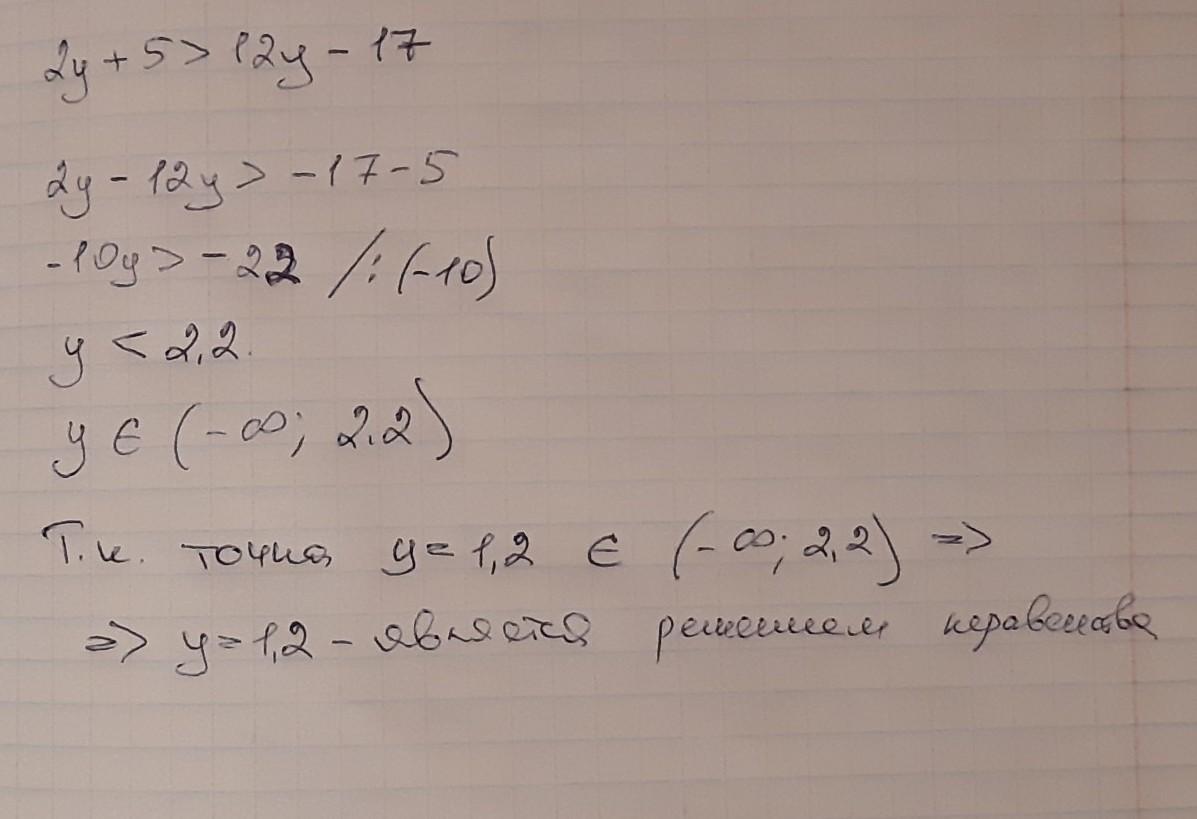 2y + 5 > 12y - 17
2y - 12y > -17 - 5
-10y > -22 /:(-10)
y < 2,2.
y ∈ (-∞; 2.2)
Т.к. точка y = 1,2 ∈ (-∞; 2,2) =>
=> y = 1,2 - является решением неравенства